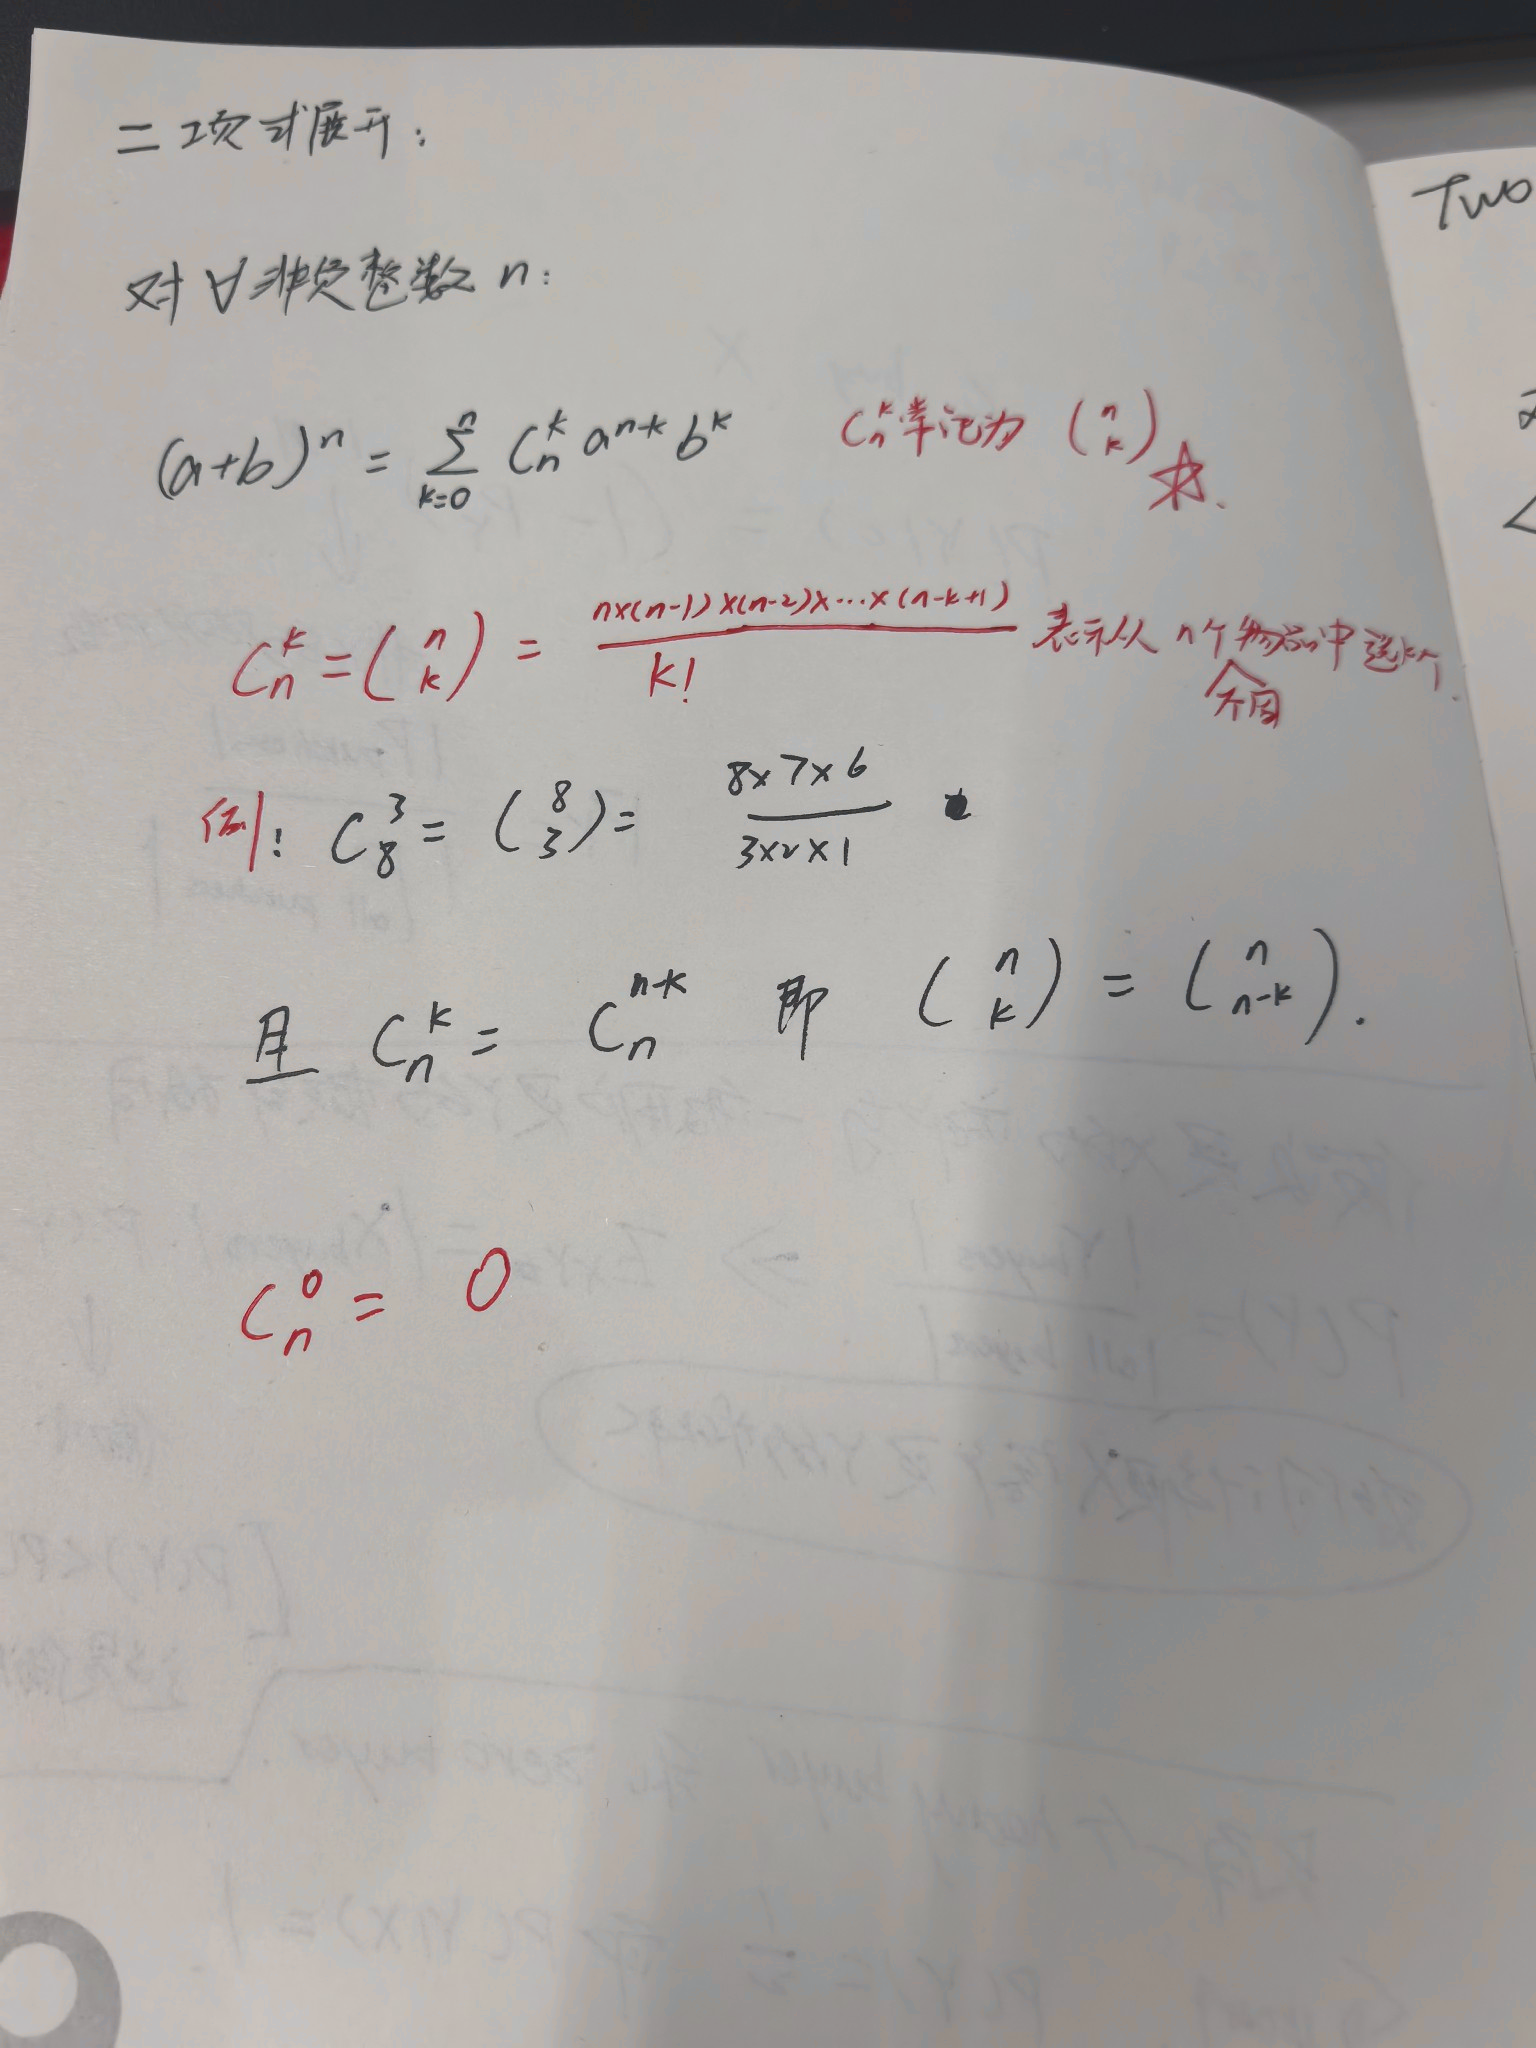 二项式展开:
对∀非负整数 n:
(a+b)^n = \sum_{k=0}^{n} C_n^k a^{n-k} b^k   C_n^k 常记为 \binom{n}{k} ☆.
C_n^k = \binom{n}{k} = \frac{n×(n-1)×(n-2)×⋯×(n-k+1)}{k!} 表示从 n个物品中选k个.
不同
例: C_8^3 = \binom{8}{3} = \frac{8×7×6}{3×2×1}
且 C_n^k = C_n^{n-k} 即 \binom{n}{k} = \binom{n}{n-k}.
C_n^0 = 0
Two